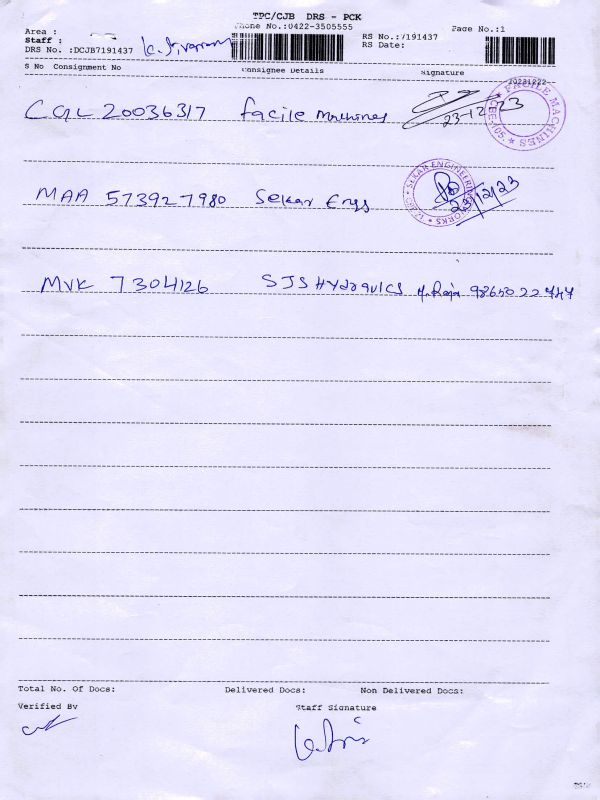 TPC/CJB DRS - PCK
Phone No.:0422-3505555
Area :
Staff : K. Sivaram
DRS No. :DCJB7191437
RS No.:7191437
RS Date:
Page No.:1
S No Consignment No Consignee Details Signature
20231222
CGL 20036317 Facile Machines 23-12-23
FACILE MACHINES
CBE-105
MAA 573927980 Sekar Engs 23/12/23
SEKAR ENGINEERING WORKS
MVK 7304126 SJS Hydraulics M. Raja 9865022747
Total No. Of Docs: Delivered Docs: Non Delivered Docs:
Verified By Staff Signature